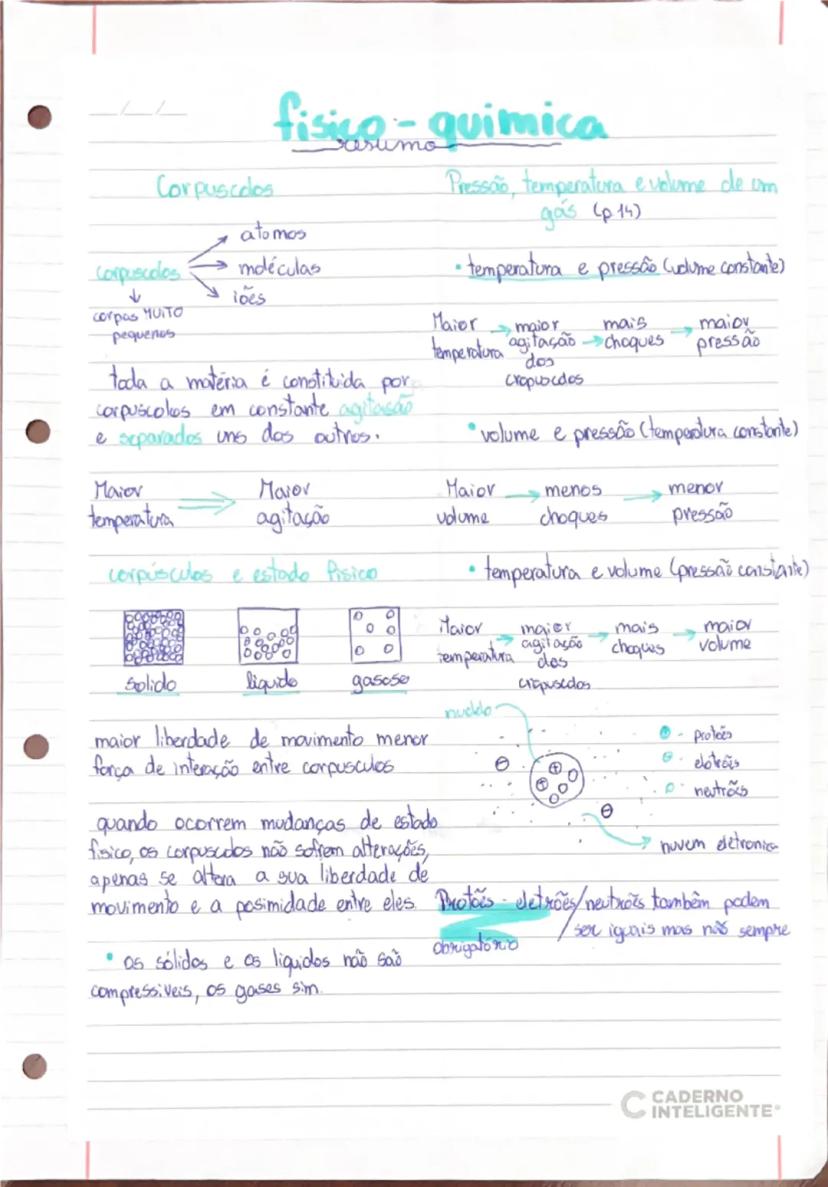 fisico-quimica
resumo
Corpuscolos
atomos
corpuscolos
moléculas
iões
corpos MUITO
pequenos
toda a matéria é constituida por
corpuscolos em constante agitação
e separados uns dos outros.
Maior
temperatura
Maior
agitação
corpúsculos e estado fisico
solido
liquido
gasoso
maior liberdade de movimento menor
força de interação entre corpusculos
quando ocorrem mudanças de estado
fisico, os corpuscolos não sofrem alterações,
apenas se altera a sua liberdade de
movimento e a posimidade entre eles.
• os sólidos e os liquidos não são
compressiveis, os gases sim.
Pressão, temperatura e volume de um
gás (p.14)
• temperatura e pressão (volume constante)
Maior
temperatura
maior
agitação
dos
cropuscolos
mais
choques
maior
pressão
• volume e pressão (temperatura constante)
Maior
volume
menos
choques
menor
pressão
• temperatura e volume (pressão constante)
Maior
temperatura
maior
agitação
dos
cropuscolos
mais
choques
maior
volume
nucleo
- protões
- eletrões
- neutrões
nuvem eletronica
Protões - eletrões/neutrões também podem
ser iguais mas não sempre
obrigatório
CADERNO
INTELIGENTE